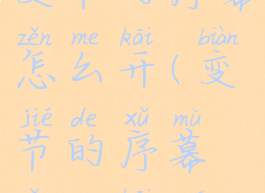 zěn me kāi biàn
怎么开(变
jié de xǔ mù
节的序幕